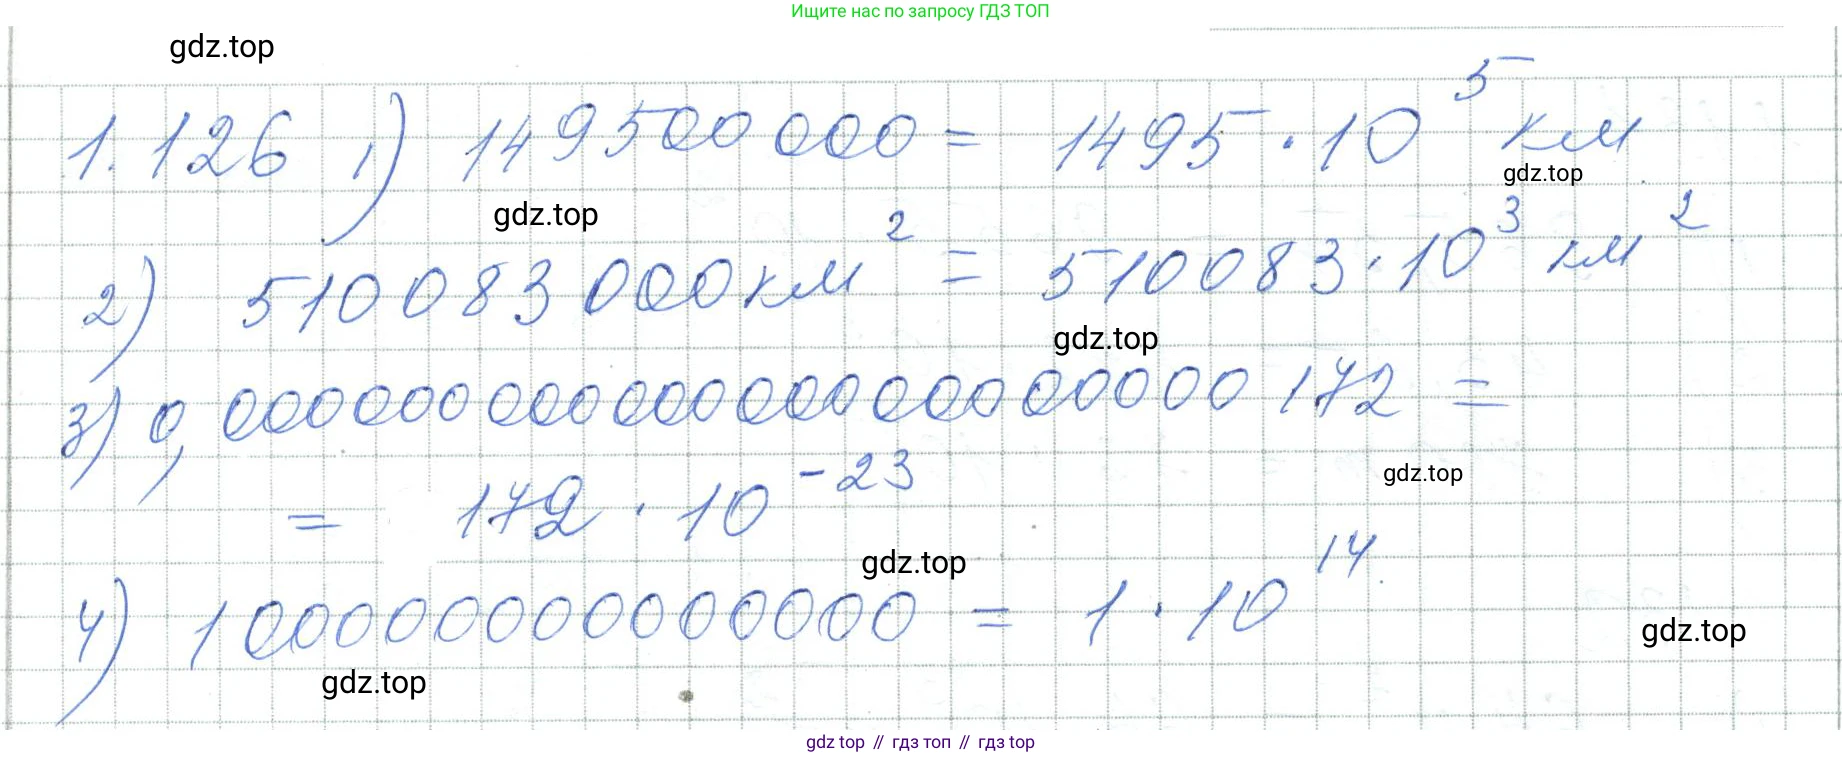 Ищите нас по запросу ГДЗ ТОП
gdz.top
1.126 1) 149500 000 = 1495 · 10⁵ км
gdz.top
gdz.top
2) 510083 000 км² = 510083 · 10³ км²
gdz.top
3) 0,000 000 000 000 000 000 00000 172 =
= 172 · 10⁻²³
gdz.top
gdz.top
4) 1 00000000000000 = 1 · 10¹⁴
gdz.top
gdz.top
gdz top // гдз топ // гдз top